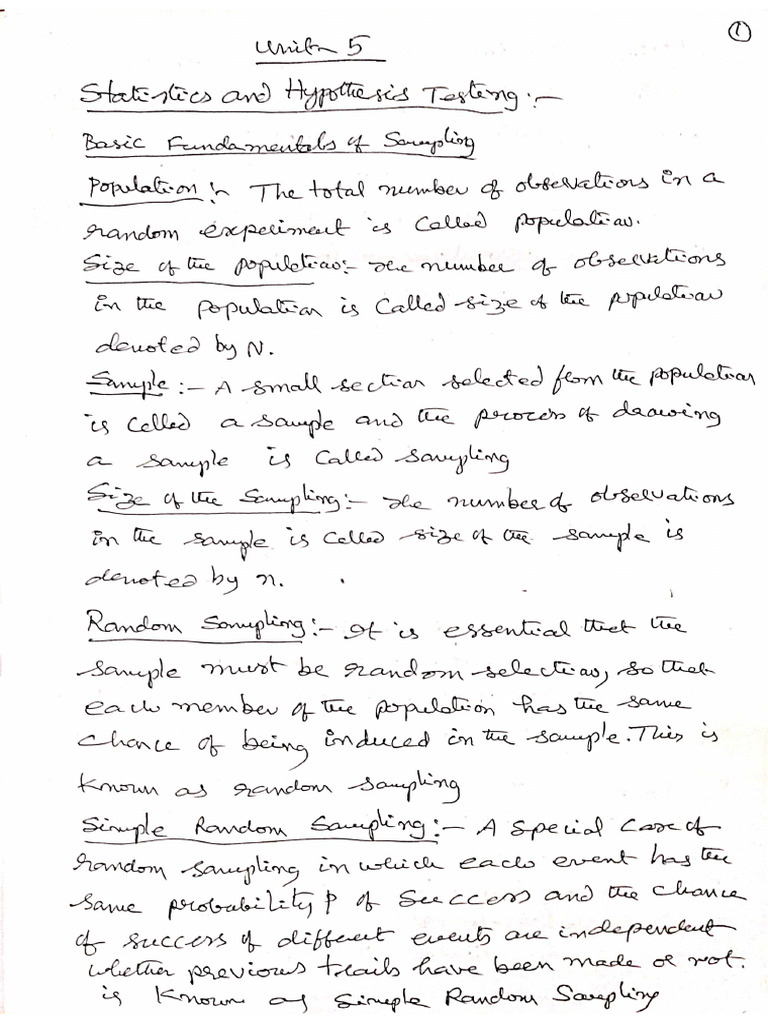 ①
Unit 5
Statistics and Hypothesis Testing :-
Basic Fundamentals of Sampling
Population :- The total number of observations in a
random experiment is called population.
Size of the population :- The number of observations
in the population is called size of the population
denoted by N.
Sample :- A small section selected from the population
is called a sample and the process of drawing
a sample is called sampling
Size of the Sampling :- The number of observations
in the sample is called size of the sample is
denoted by n.
Random Sampling :- It is essential that the
sample must be random selection, so that
each member of the population has the same
chance of being induced in the sample. This is
known as random sampling
Simple Random Sampling :- A special case of
random sampling in which each event has the
same probability p of success and the chance
of success of different events are independent
whether previous trails have been made or not.
is known as simple Random Sampling